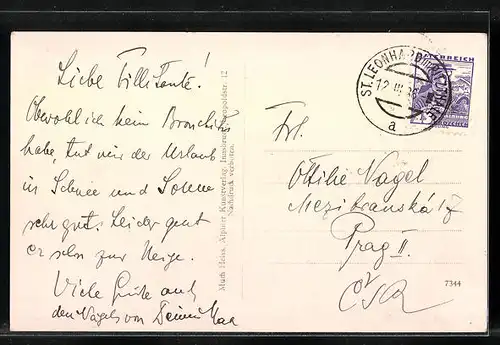 Liebe Tillitante!
Obwohl ich kein Bronchitis
habe, tut mir der Urlaub
in Schnee und Sonne
sehr gut. Leider geht
er schon zur Neige.
Viele Grüße auch
den Nagels von
Much Heiss, Alpiner Kunstverlag, Innsbruck, Leopoldstr. 12
Nachdruck verboten.
ST. LEONHARD
12
a
ÖSTERREICH
Frl.
Ottilie Nagel
Mezibranská 7
Prag II.
ČSR
7344